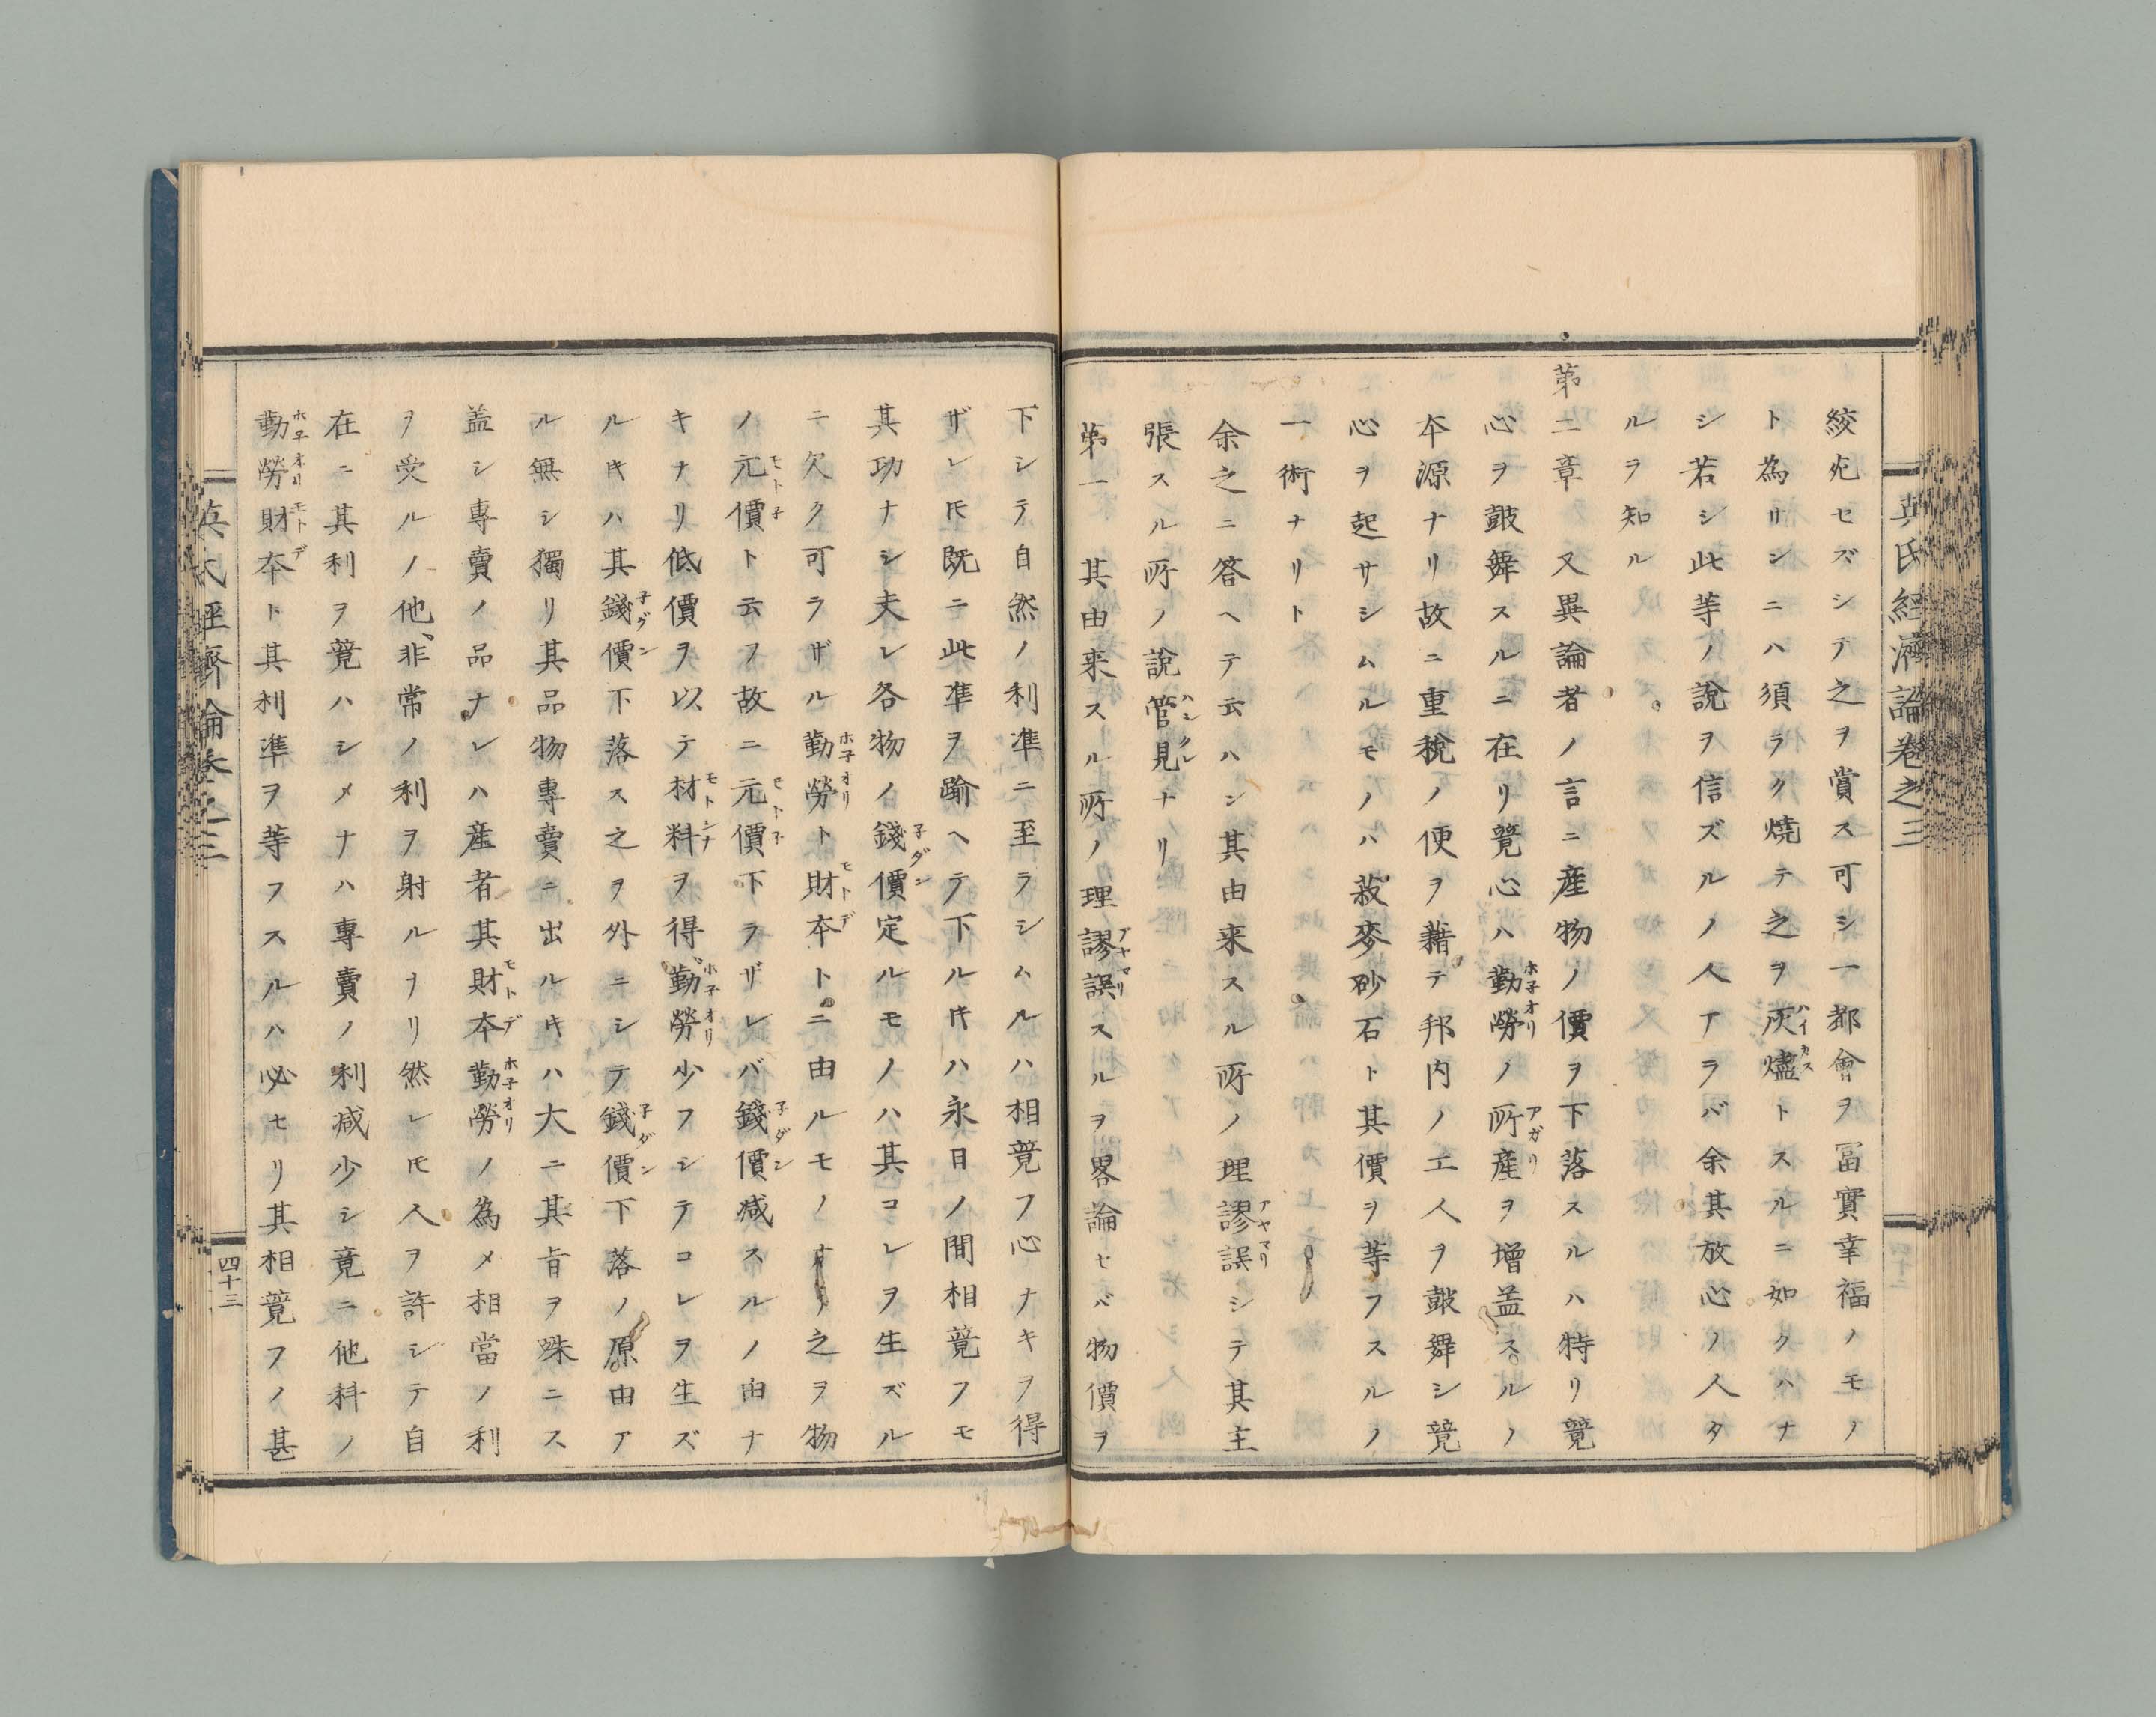 英氏經濟論卷之三
絞死セズシテ之ヲ賞ス可シ一都會ヲ冨實幸福ノモノ
ト為サンニハ須ラク燒テ之ヲ灰燼トスルニ如クハナ
シ若シ此等ノ說ヲ信ズルノ人アラバ余其放心ノ人タ
ルヲ知ル
第二章 又異論者ノ言ニ産物ノ價ヲ下落スルハ特リ競
心ヲ皷舞スルニ在リ競心ハ勤勞ノ所産ヲ増益スルノ
本源ナリ故ニ重稅ノ便ヲ藉テ邦内ノ工人ヲ皷舞シ競
心ヲ起サシムルモノハ菽麥砂石ト其價ヲ等フスルノ
一術ナリト
余之ニ答ヘテ云ハン其由来スル所ノ理謬誤シテ其主
張スル所ノ說管見ナリ
第一 其由来スル所ノ理謬誤スルヲ畧論セバ物價ヲ
下シテ自然ノ利準ニ至ラシムルハ相競フ心ナキヲ得
ザレ𪜈既ニ此準ヲ踰ヘテ下ルキハ永日ノ間相競フモ
其功ナシ夫レ各物ノ錢價定ルモノハ其コレヲ生ズル
ニ欠ク可ラザル勤勞ト財本トニ由ルモノナリ之ヲ物
ノ元價ト云フ故ニ元價下ラザレバ錢價减スルノ由ナ
キナリ低價ヲ以テ材料ヲ得、勤勞少フシテコレヲ生ズ
ルキハ其錢價下落ス之ヲ外ニシテ錢價下落ノ原由ア
ル無シ獨リ其品物專賣ニ出ルキハ大ニ其旨ヲ殊ニス
盖シ專賣ノ品ナレハ産者其財本勤勞ノ為メ相當ノ利
ヲ受ルノ他、非常ノ利ヲ射ルヲリ然レ𪜈人ヲ許シテ自
在ニ其利ヲ競ハシメナハ專賣ノ利减少シ竟ニ他科ノ
勤勞財本ト其利準ヲ等フスルハ必セリ其相競フノ甚
英氏經濟論卷之三
四十三